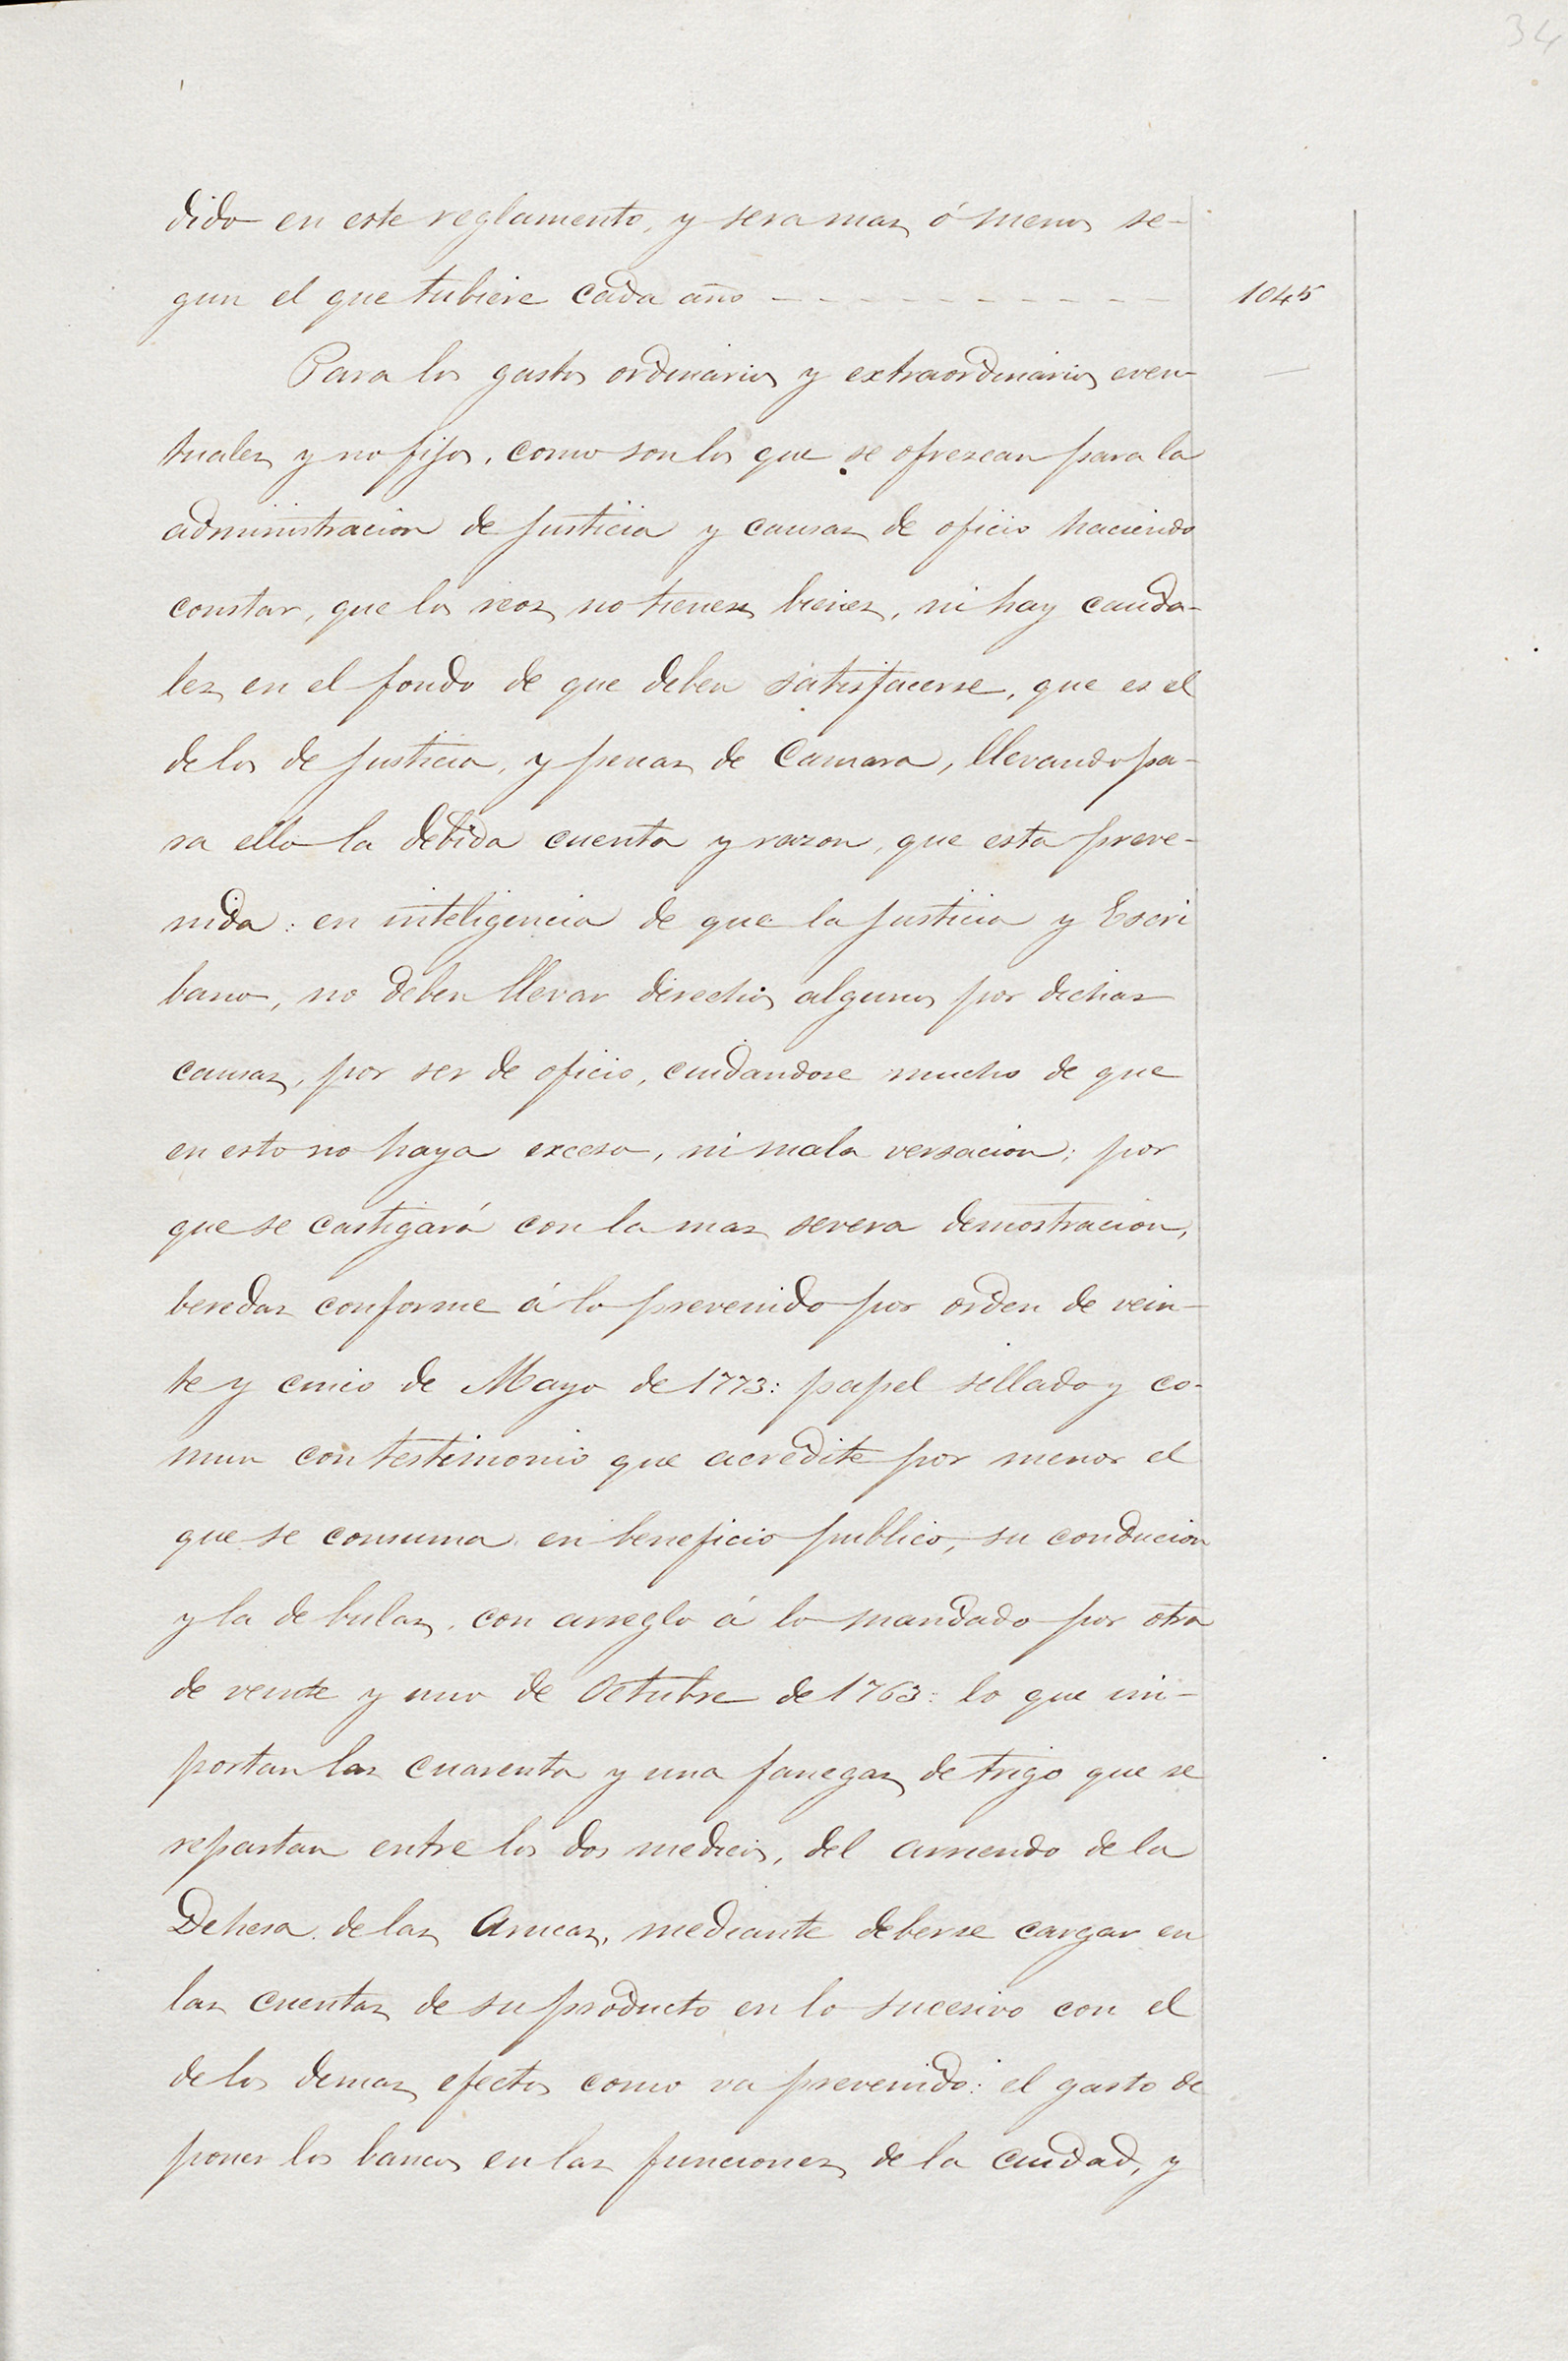 34
dido en este reglamento, y sera mas ó menos se-
gun el que tubiere cada año - - - - - - - - - - - 1045
Para los gastos ordinarios y extraordinarios even-
tuales y no fijos, como son los que se ofrezcan para la
administracion de justicia y causas de oficio haciendo
constar, que los reos no tienen bienes, ni hay cauda-
les en el fondo de que deben satisfacerse, que es el
de los de justicia, y penas de Camara, llevando pa-
ra ello la debida cuenta y razon, que esta preve-
nida: en inteligencia de que la justicia y Escri
bano, no deben llevar derechos algunos por dichas
causas, por ser de oficio, cuidandose mucho de que
en esto no haya exceso, ni mala versacion; por
que se castigará con la mas severa demostracion,
beredas conforme á lo prevenido por orden de vein-
te y cinco de Mayo de 1773: papel sellado y co-
mun con testimonio que acredite por menor el
que se consuma en beneficio publico, su conducion
y la de bulas, con arreglo á lo mandado por otra
de veinte y uno de Octubre de 1763: lo que im-
portan las cuarenta y una fanegas de trigo que se
repartan entre los dos medicos, del arriendo de la
Dehesa de las mediante deberse cargar en
las cuentas de su producto en lo sucesivo con el
de los demas efectos como va prevenido: el gasto de
poner los bancos en las funciones de la Ciudad, y